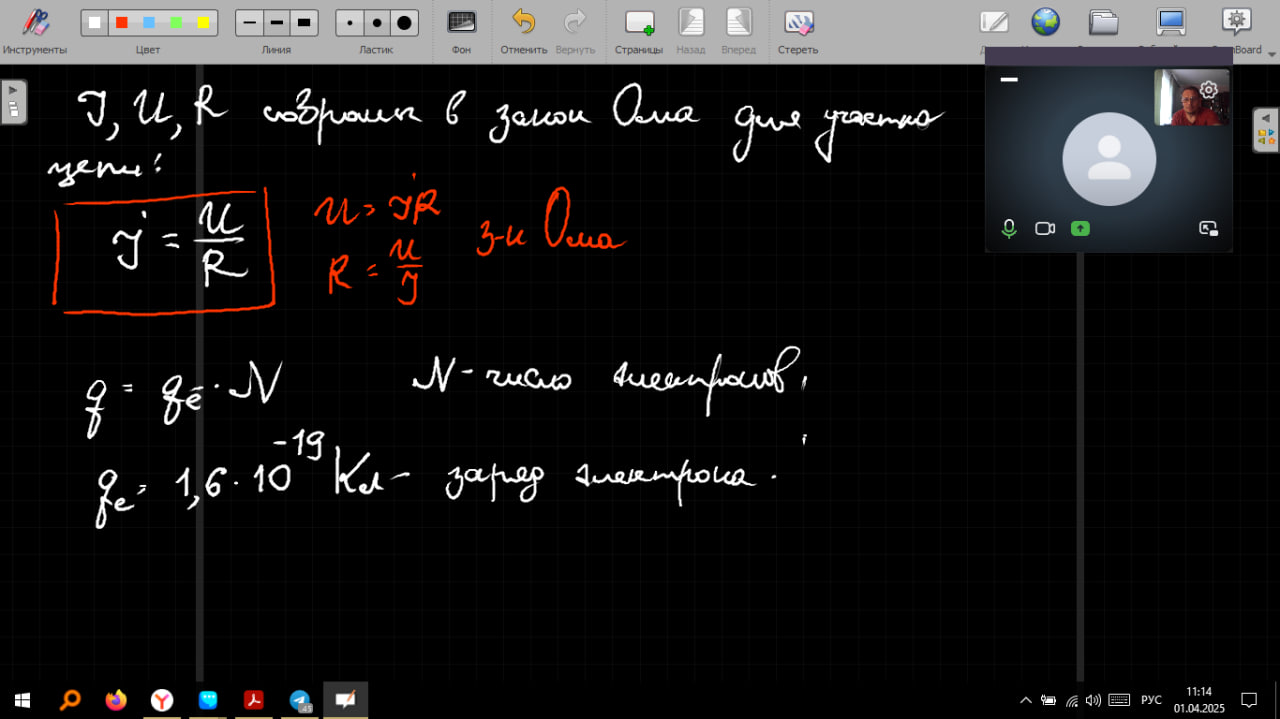 Инструменты Цвет Линия Ластик Фон Отменить Вернуть Страницы Назад Вперед Стереть
I, U, R собраны в закон Ома для участка
цепи:
I = U/R
U = IR
R = U/I
з-н Ома
q = qe · N N - число электронов,
qe = 1,6 · 10^-19 Кл - заряд электрона.
45
РУС
11:14
01.04.2025